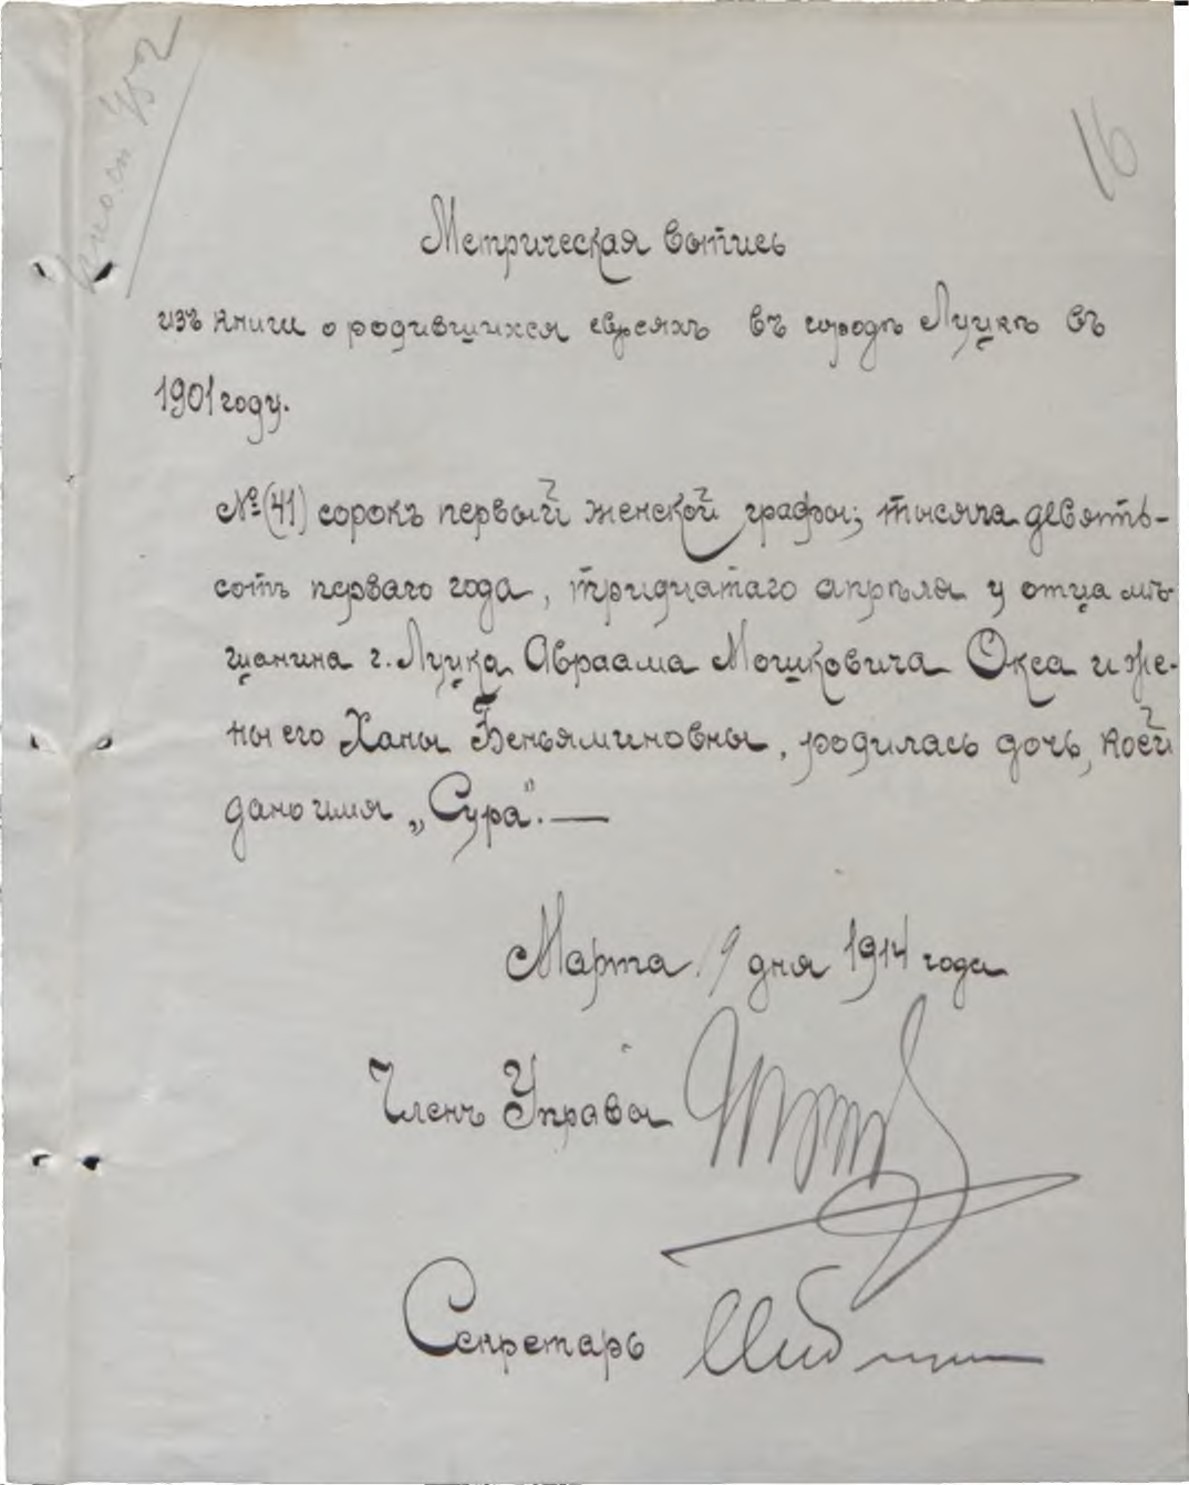 16
Метрическая выпись
изъ книги о родившихся евреяхъ въ городѣ Луцкѣ въ
1901 году.
№ (41) сорокъ первый женской графы; тысяча девять-
сотъ перваго года, тридцатаго апрѣля у отца мѣ-
щанина г. Луцка Авраама Мошковича Окса и же-
ны его Ханы Беньяминовны, родилась дочь, коей
дано имя „Сура". —
Марта 9 дня 1914 года
Членъ Управы
Секретарь